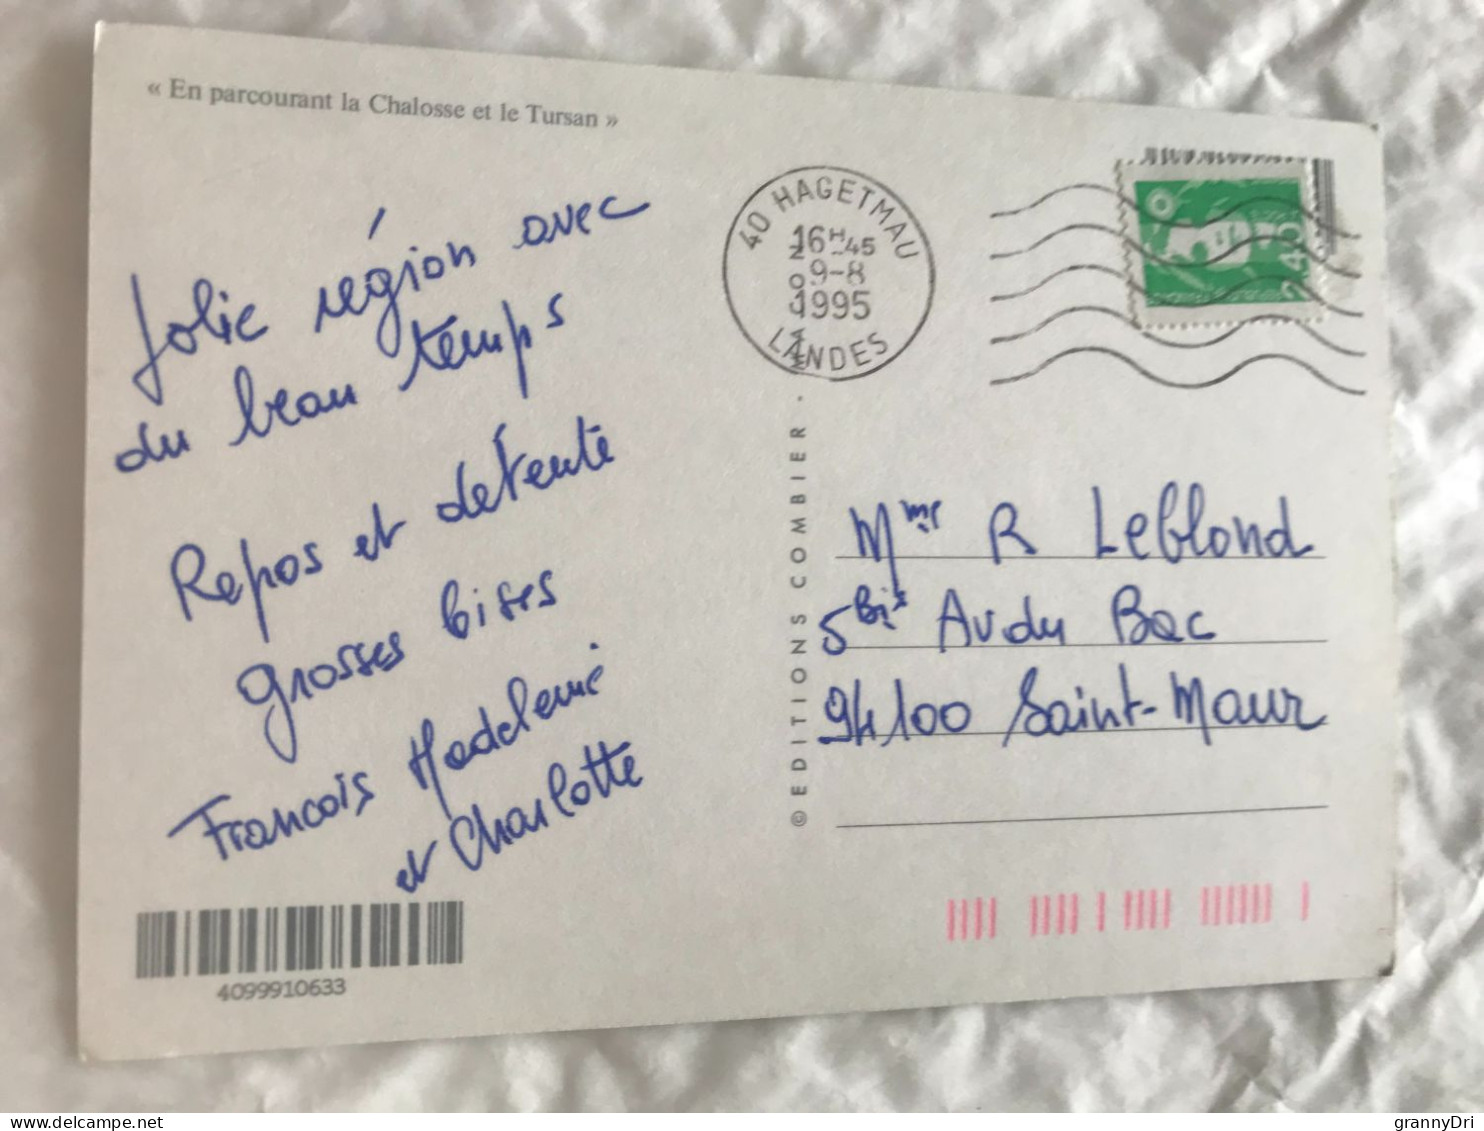 « En parcourant la Chalosse et le Tursan »
Jolie région avec
du beau temps
Repos et détente
grosses bises
Francois Madeleine
et Charlotte
4099910633
40 HAGETMAU
16H45
9-8
1995
LANDES
2,40
© EDITIONS COMBIER -
Mme R Leblond
5bis Av du Bac
94100 Saint-Maur
grannyDri